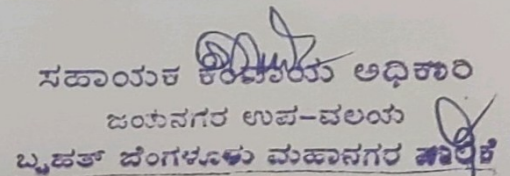 ಸಹಾಯಕ ಕಂದಾಯ ಅಧಿಕಾರಿ
ಜಯನಗರ ಉಪ-ವಲಯ
ಬೃಹತ್ ಬೆಂಗಳೂರು ಮಹಾನಗರ ಪಾಲಿಕೆ